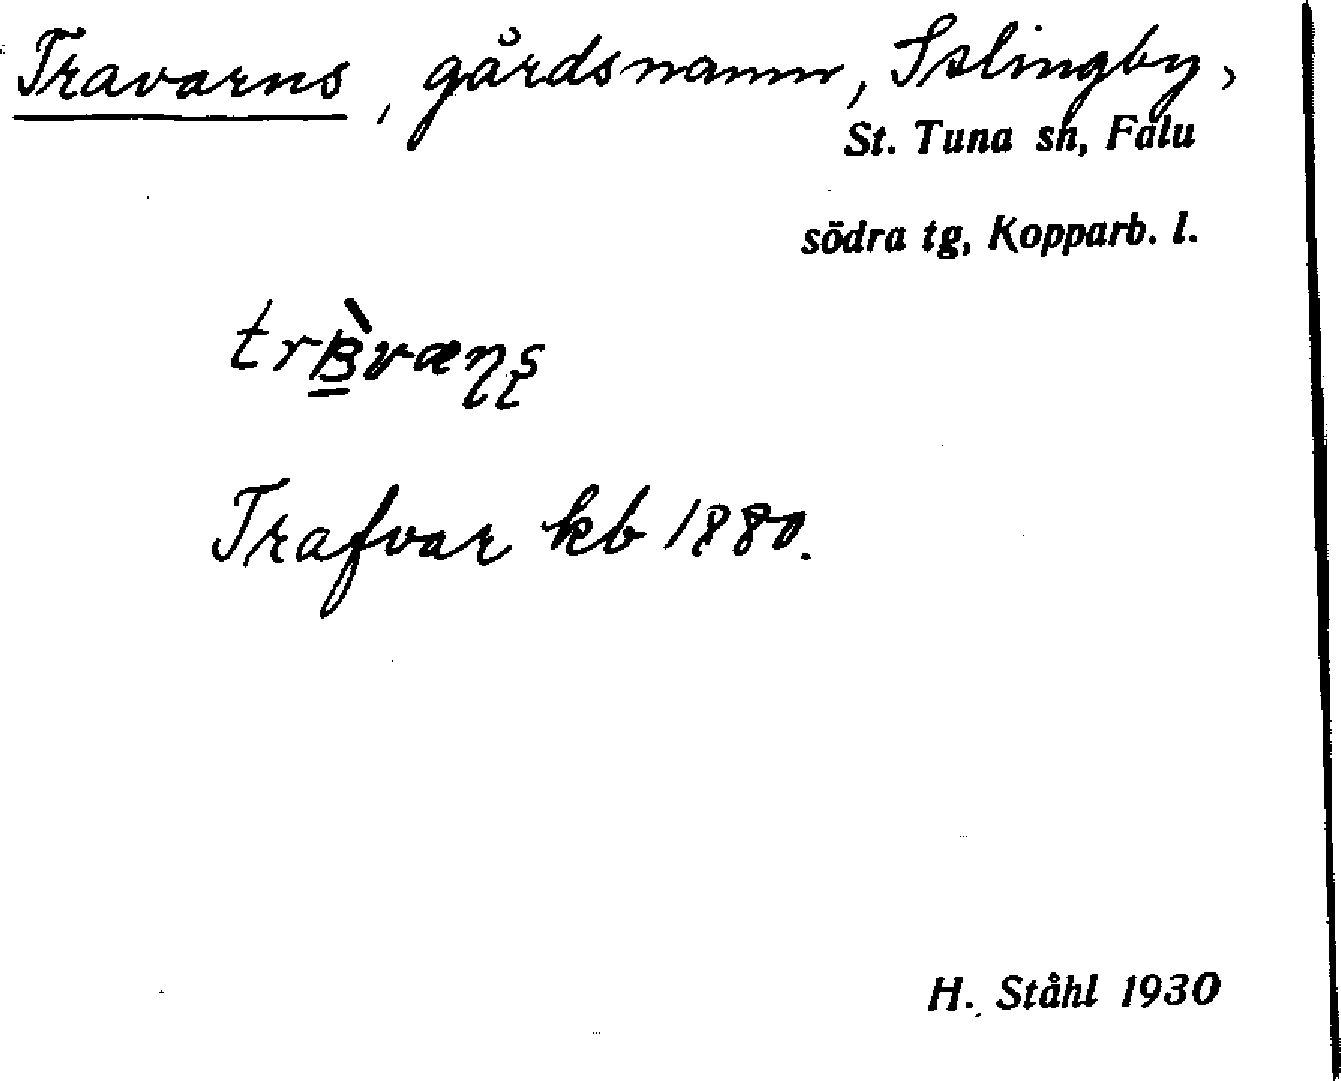 Travarns, gårdsnamn, Islingby,
St. Tuna sn, Falu
södra tg, Kopparb. l.
Trafvar kb 1880.
H. Ståhl 1930